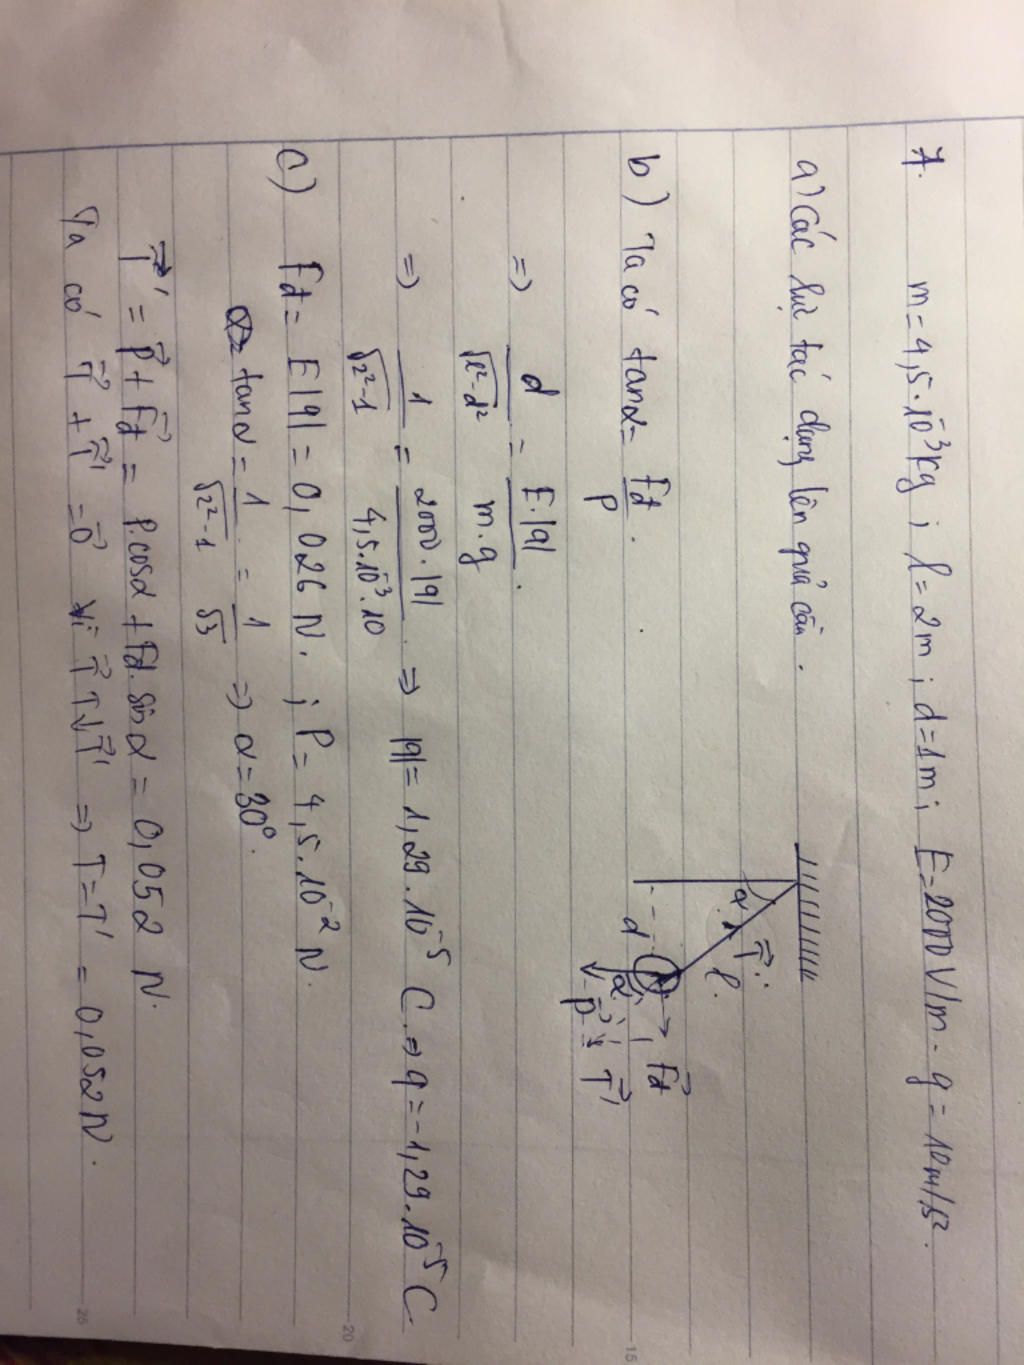 7. m = 4,5.10⁻³kg ; l = 2m ; d = 1m ; E = 2000V/m. g = 10m/s².
a) Các lực tác dụng lên quả cầu.
α T⃗ l.
d
α F⃗đ
P⃗ T⃗'
b) Ta có tanα = Fđ/P.
=> d/√(l²-d²) = E.|q|/m.g.
=> 1/√(2²-1) = 2000.|q|/4,5.10⁻³.10. => |q| = 1,29.10⁻⁵ C. => q = -1,29.10⁻⁵ C
c) Fđ = E|q| = 0,026 N. ; P = 4,5.10⁻² N.
tanα = 1/√(2²-1) = 1/√3 => α = 30°.
T⃗' = P⃗ + F⃗đ = P.cosα + Fđ.sinα = 0,052 N.
Ta có T⃗ + T⃗' = 0⃗ vì T⃗ ↑↓ T⃗' => T = T' = 0,052N.
15
20
25